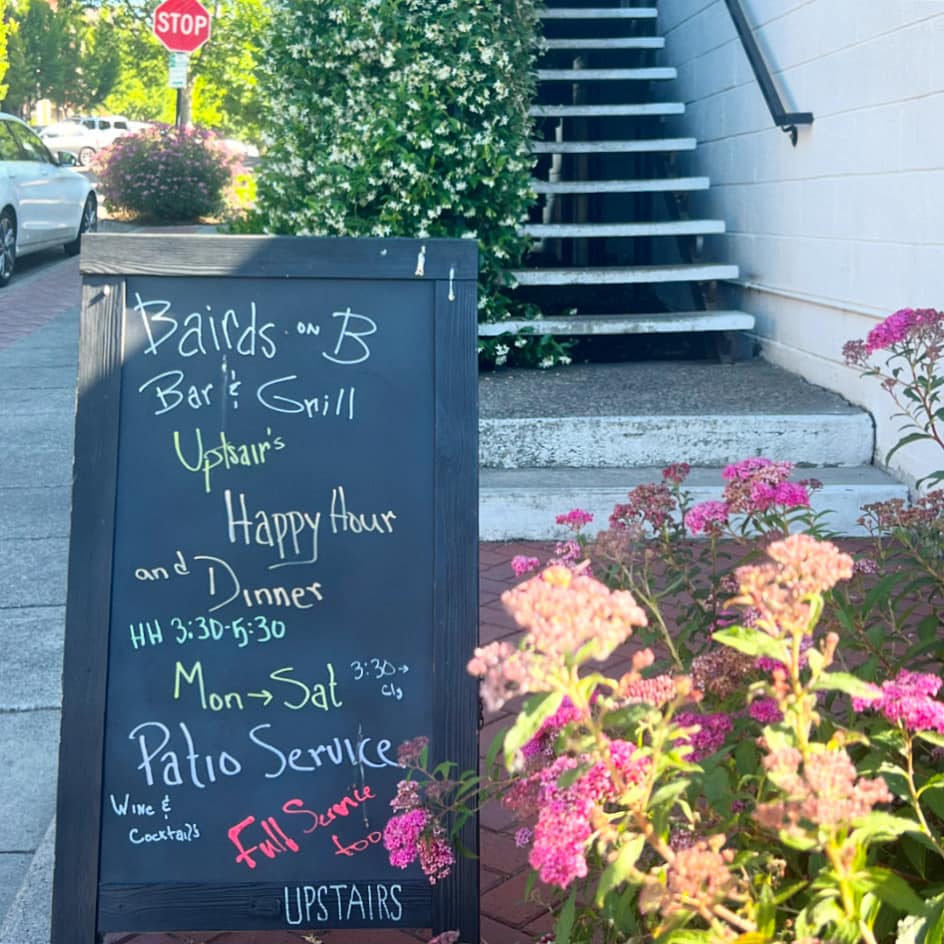 STOP
Bairds on B
Bar & Grill
Uptsair's
Happy Hour
and Dinner
HH 3:30-5:30
Mon→Sat 3:30→
Patio Service
Wine &
Cocktails
Full Service
too
UPSTAIRS